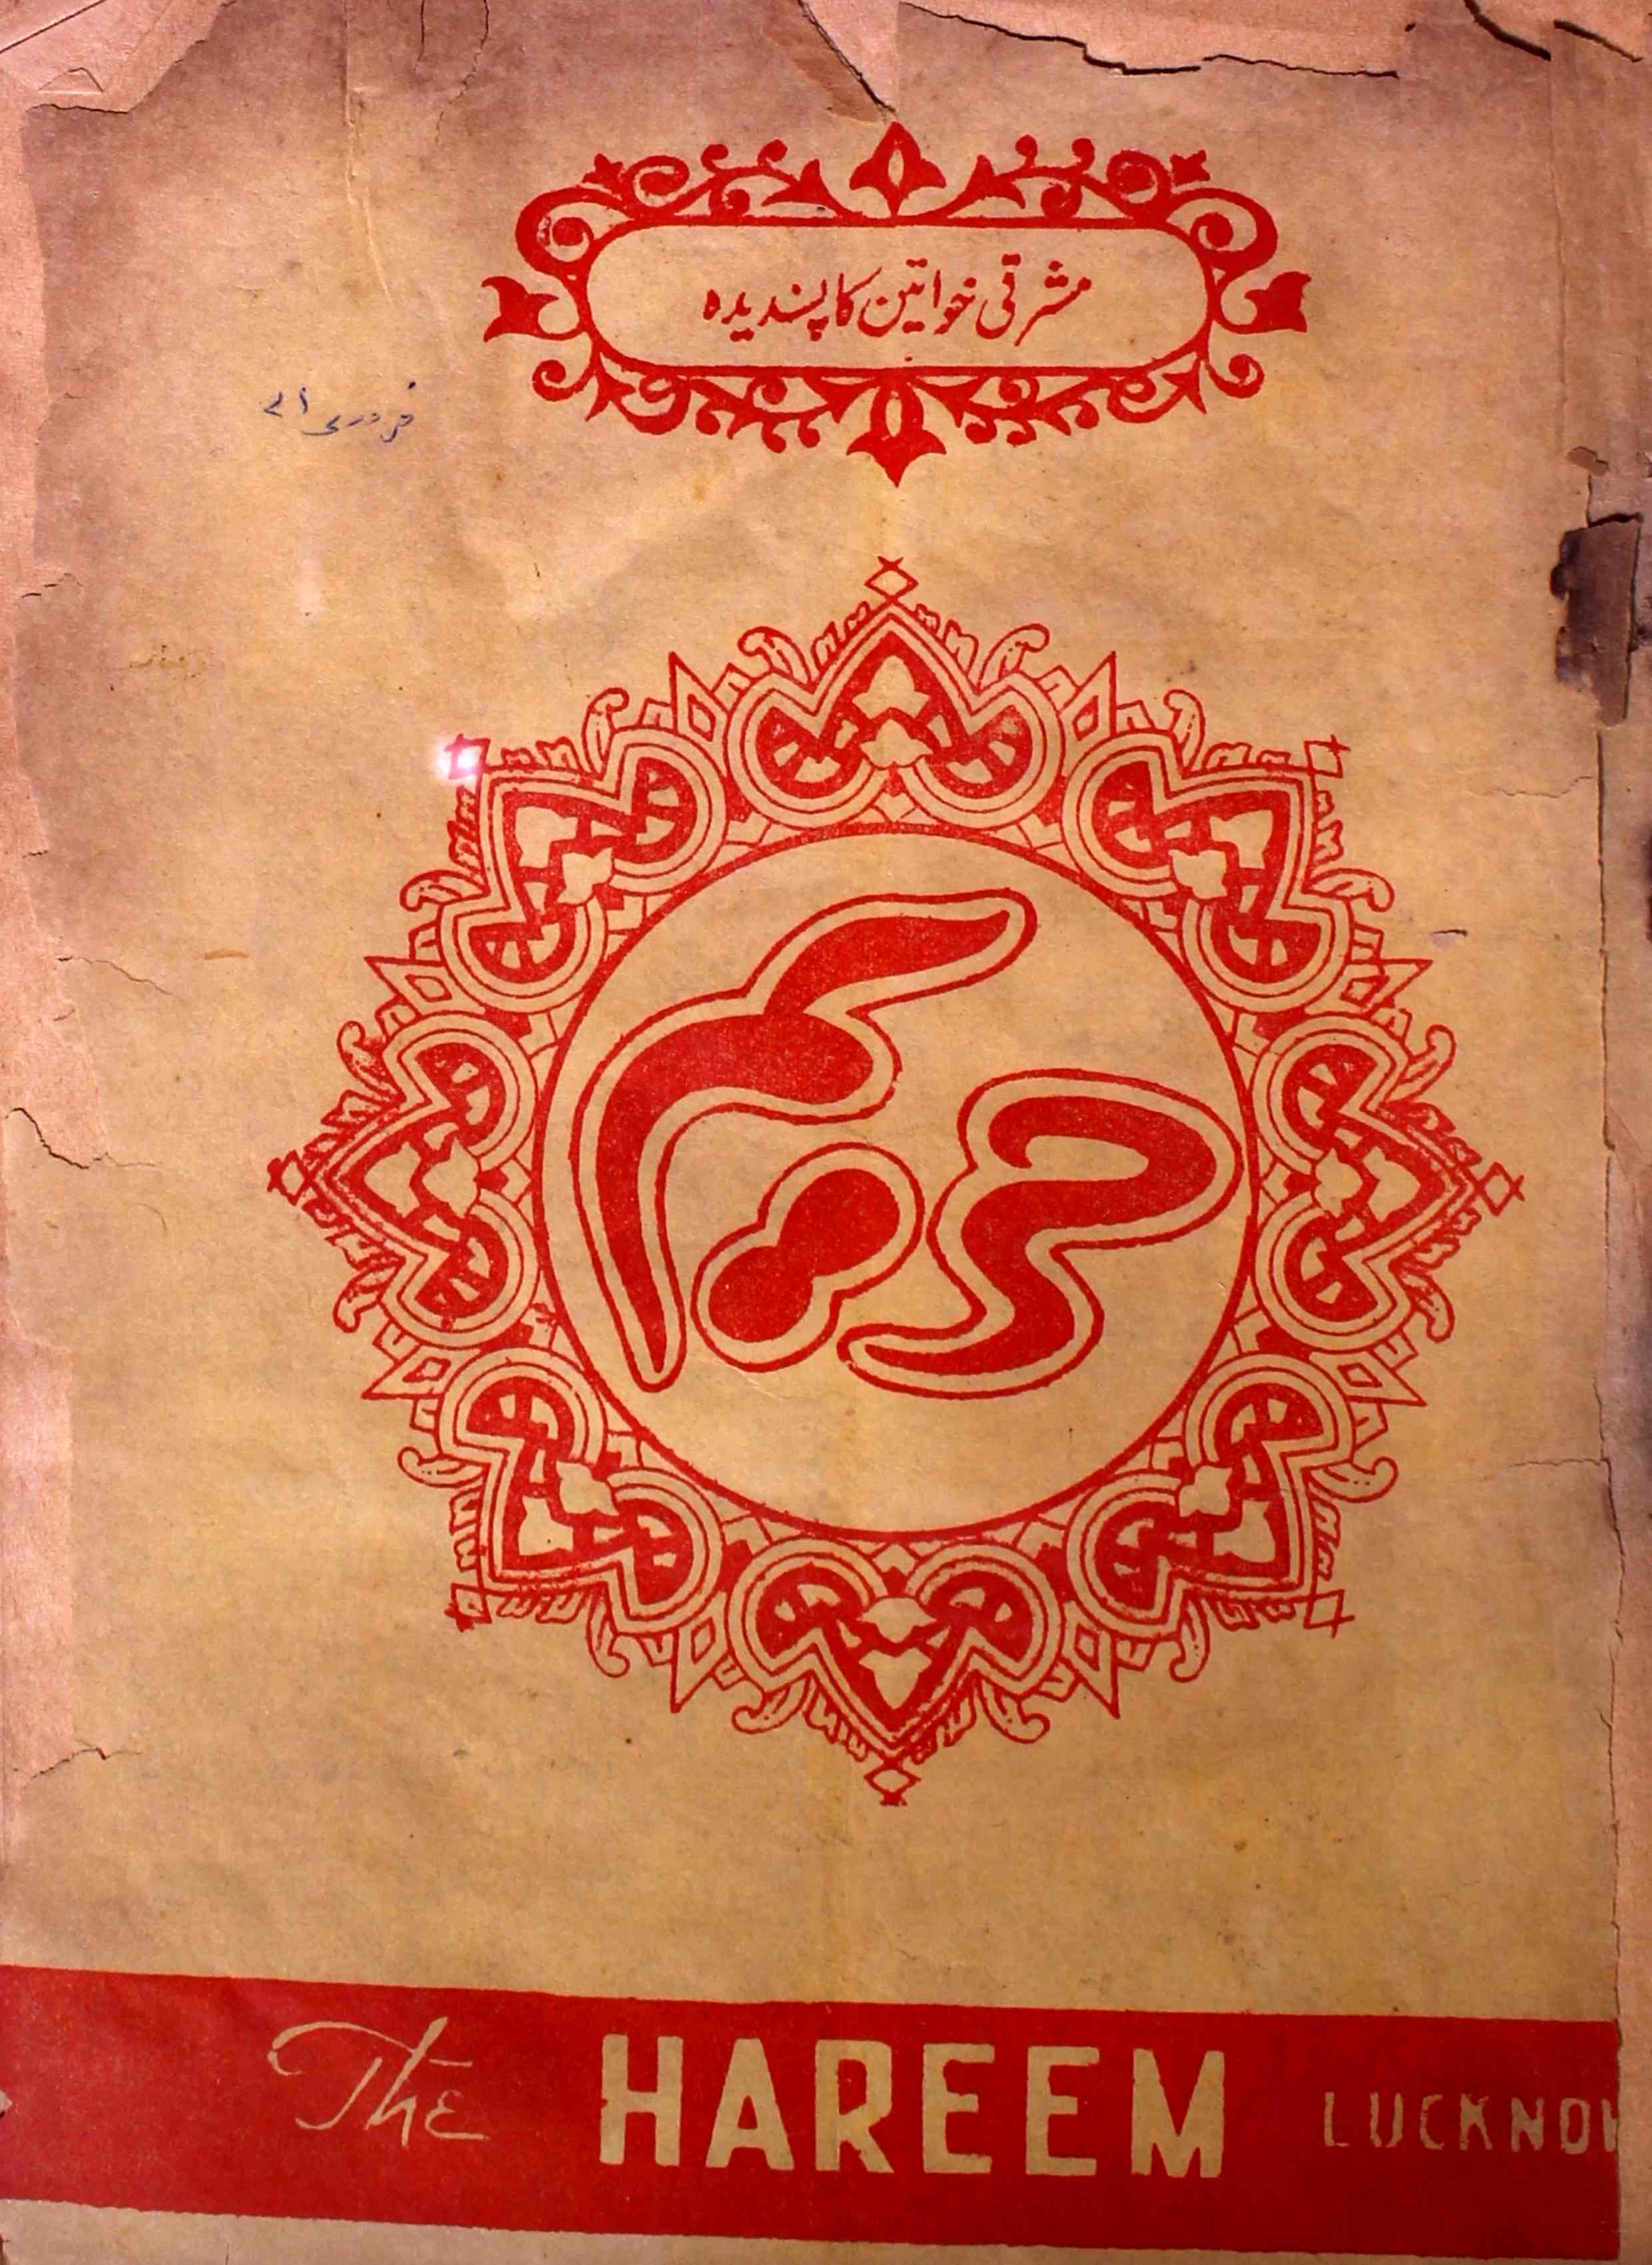 مشرقی خواتین کا پسندیدہ
فروری ۷۱
حریم
The HAREEM LUCKNOW